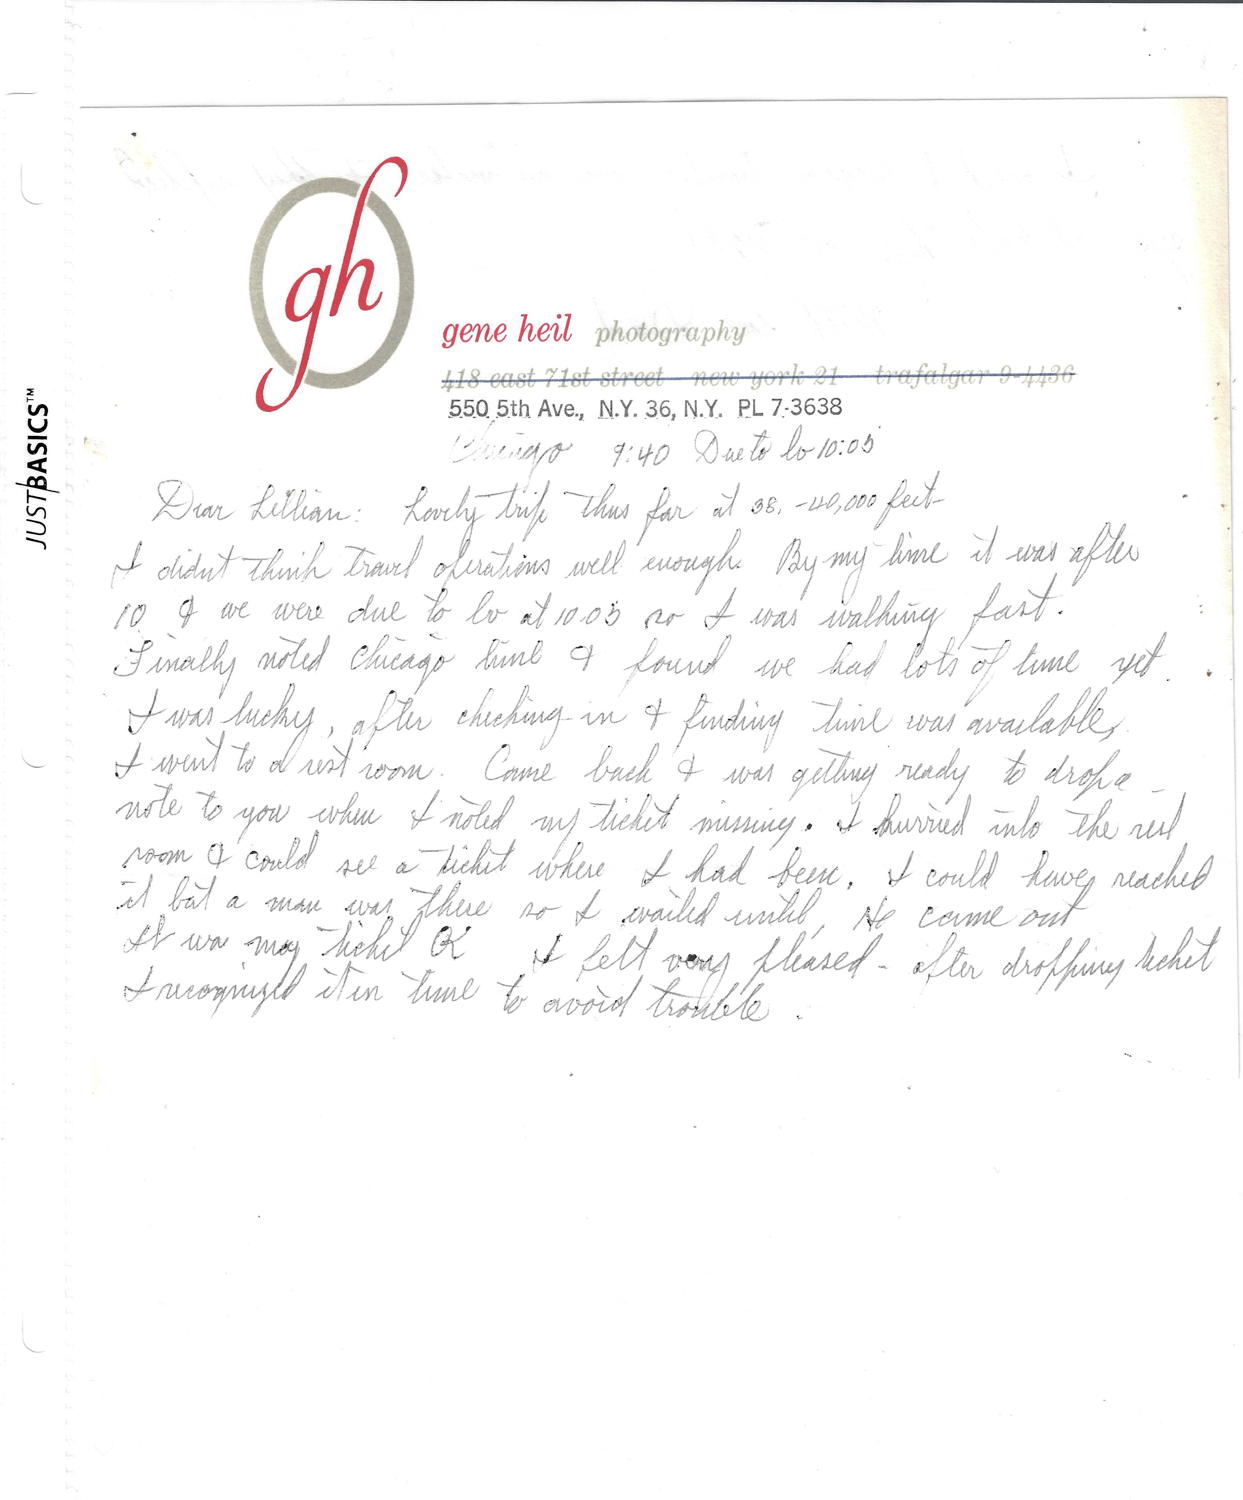 JUST BASICS™
gh
gene heil photography
418 east 71st street new york 21 trafalgar 9-4436
550 5th Ave., N.Y. 36, N.Y. PL 7-3638
Chicago 9:40 Due to lv 10:05
Dear Lillian: Lovely trip thus far at 38,-40,000 feet-
I didnt think travel operations well enough. By my time it was after
10 & we were due to lv at 10 05 so I was walking fast.
Finally noted Chicago time & found we had lots of time yet.
I was lucky, after checking in & finding time was available,
I went to a rest room. Came back & was getting ready to drop a
note to you when I noted my ticket missing. I hurried into the rest
room & could see a ticket where I had been. I could have reached
it but a man was there so I waited until, He came out
It was my ticket OK I felt very pleased - after dropping ticket
I recognized it in time to avoid trouble.